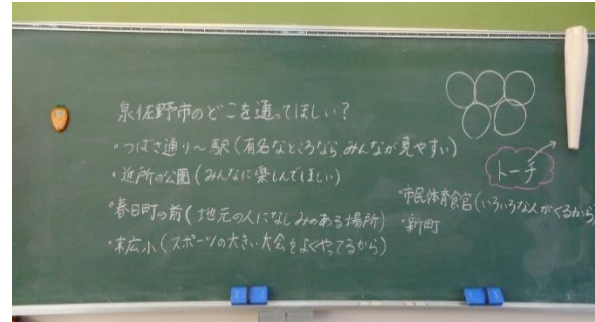 泉佐野市のどこを通ってほしい？
・つばさ通り〜駅（有名なところなら、みんなが見やすい）
・近所の公園（みんなに楽しんでほしい）
・春日町の前（地元の人になじみのある場所）
・末広小（スポーツの大きい大会をよくやってるから）
トーチ
・市民体育館（いろいろな人がくるから）
・新町